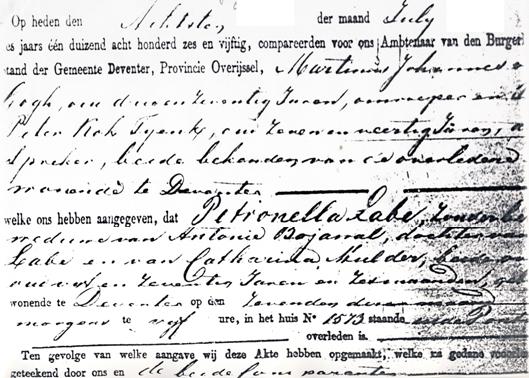 Op heden den Achtsten der maand July
es jaars één duizend acht honderd zes en vijftig, compareerden voor ons Ambtenaar van den Burger
stand der Gemeente Deventer, Provincie Overijssel, Martinus Johannes
hogh, oud drie en zeventig Jaren, omroeper en
Peter Kok, oud zeven en veertig Jaren,
spreker, beide bekenden van de overledene
wonende te Deventer
welke ons hebben aangegeven, dat Petronella Labe, zonder be
weduwe van Antonie Bojanal, dochter van
Labe en van Catharina Mulder, beide
oud en zeventig Jaren en zes maanden,
wonende te Deventer op den zevenden dezer maand
morgens te vijf ure, in het huis No 1573 staande
overleden is.
Ten gevolge van welke aangave wij deze Akte hebben opgemaakt, welke na gedane
geteekend door ons en de beide comparanten